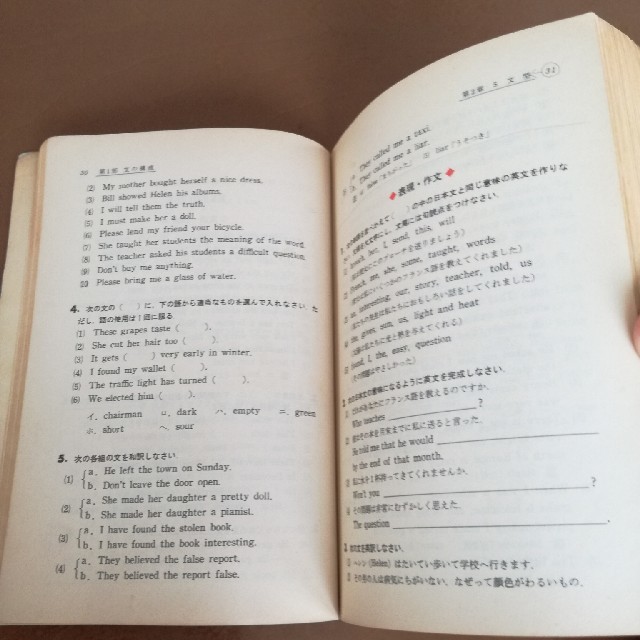 30 第1部 文の構成
(2) My mother bought herself a nice dress.
(3) Bill showed Helen his albums.
(4) I will tell them the truth.
(5) I must make her a doll.
(6) Please lend my friend your bicycle.
(7) She taught her students the meaning of the word.
(8) The teacher asked his students a difficult question.
(9) Don't buy me anything.
(10) Please bring me a glass of water.
4. 次の文の( )に、下の語から適当なものを選んで入れなさい。た
だし、語の使用は1回に限る
(1) These grapes taste ( ).
(2) She cut her hair too ( ).
(3) It gets ( ) very early in winter.
(4) I found my wallet ( ).
(5) The traffic light has turned ( ).
(6) We elected him ( ).
イ. chairman ロ. dark ハ. empty ニ. green
ホ. short ヘ. sour
5. 次の各組の文を和訳しなさい
(1) a. He left the town on Sunday.
b. Don't leave the door open.
(2) a. She made her daughter a pretty doll.
b. She made her daughter a pianist.
(3) a. I have found the stolen book.
b. I have found the book interesting.
(4) a. They believed the false report.
b. They believed the report false.
文 型 31
They called me a taxi.
They called me a liar.
liar「うそつき」
◆表現・作文◆
の中の日本文と同じ意味の英文を作りな
文尾には句読点をつけなさい.
her, I, send, this, will
me, she, some, taught, words
interesting, our, story, teacher, told, us
gives, sun, us, light and heat
found, I, the, easy, question
2. 次の日本文の意味になるように英文を完成しなさい.
だれがあなたにフランス語を教えるのですか.
Who teaches ?
彼はその本を月末までに私に送ると言った.
He told me that he would
by the end of that month.
私に水を1杯持ってきてくれませんか.
Won't you ?
その問題は非常にむずかしく思えた.
The question .
3. 次の文を英訳しなさい.
ヘレン(Helen)はたいてい歩いて学校へ行きます.
その男の人は病気にちがいない、なぜって顔色がわるいもの.